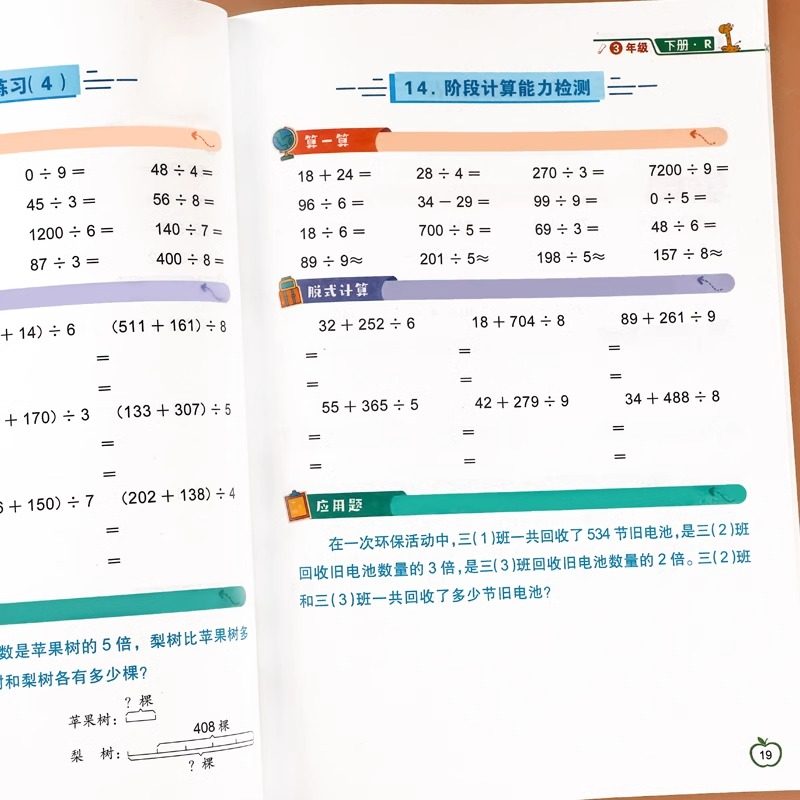 练习(4)
0÷9＝ 48÷4＝
45÷3＝ 56÷8＝
1200÷6＝ 140÷7＝
87÷3＝ 400÷8＝
+14)÷6 (511+161)÷8
＝
＝
+170)÷3 (133+307)÷5
＝
＝
6+150)÷7 (202+138)÷4
＝
＝
数是苹果树的5倍，梨树比苹果树多
树和梨树各有多少棵?
? 棵
苹果树:
408棵
梨 树:
? 棵
3年级 下册·R
14.阶段计算能力检测
算一算
18+24＝ 28÷4＝ 270÷3＝ 7200÷9＝
96÷6＝ 34－29＝ 99÷9＝ 0÷5＝
18÷6＝ 700÷5＝ 69÷3＝ 48÷6＝
89÷9≈ 201÷5≈ 198÷5≈ 157÷8≈
脱式计算
32+252÷6 18+704÷8 89+261÷9
＝ ＝ ＝
＝ ＝ ＝
55+365÷5 42+279÷9 34+488÷8
＝ ＝ ＝
＝ ＝ ＝
应用题
在一次环保活动中,三(1)班一共回收了534节旧电池,是三(2)班
回收旧电池数量的3倍,是三(3)班回收旧电池数量的2倍。三(2)班
和三(3)班一共回收了多少节旧电池?
19